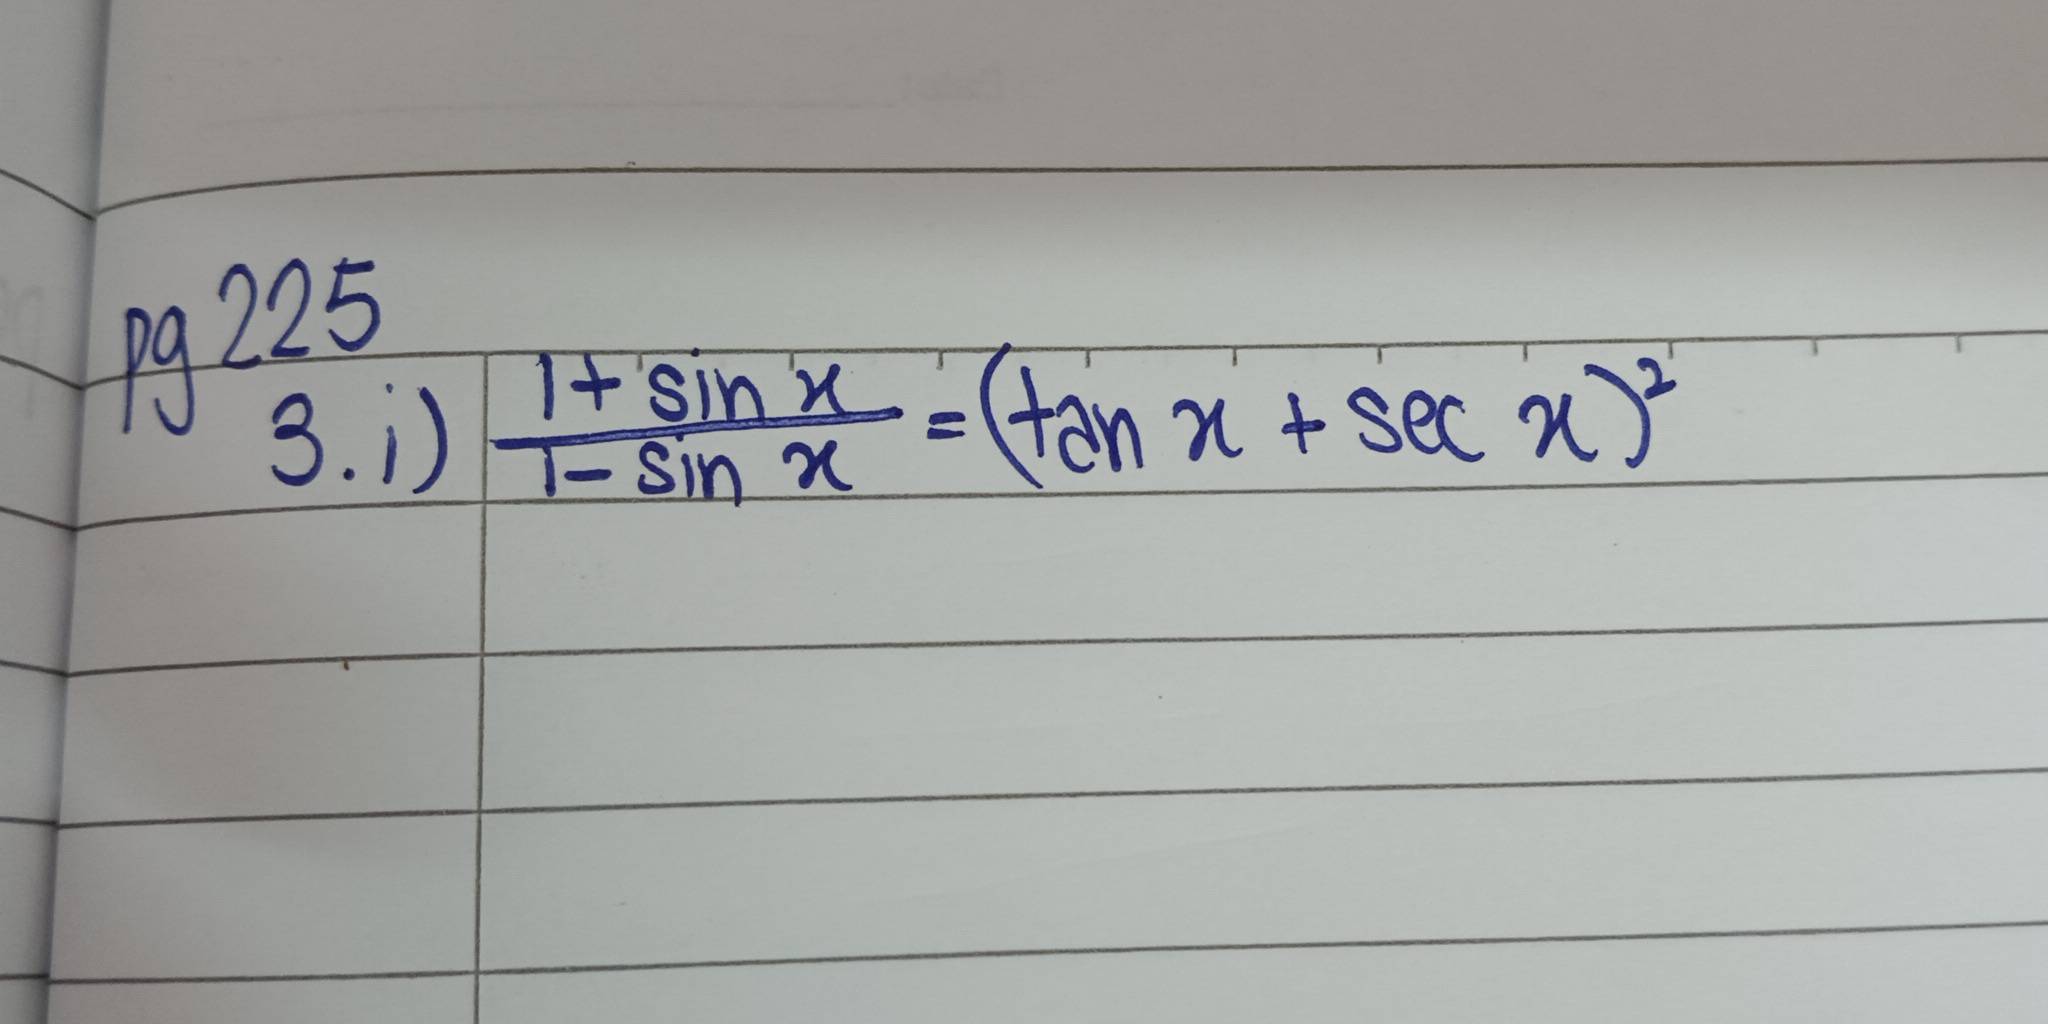 pg 225
3. i) \frac{1 + sin x}{1 - sin x} = (tan x + sec x)²